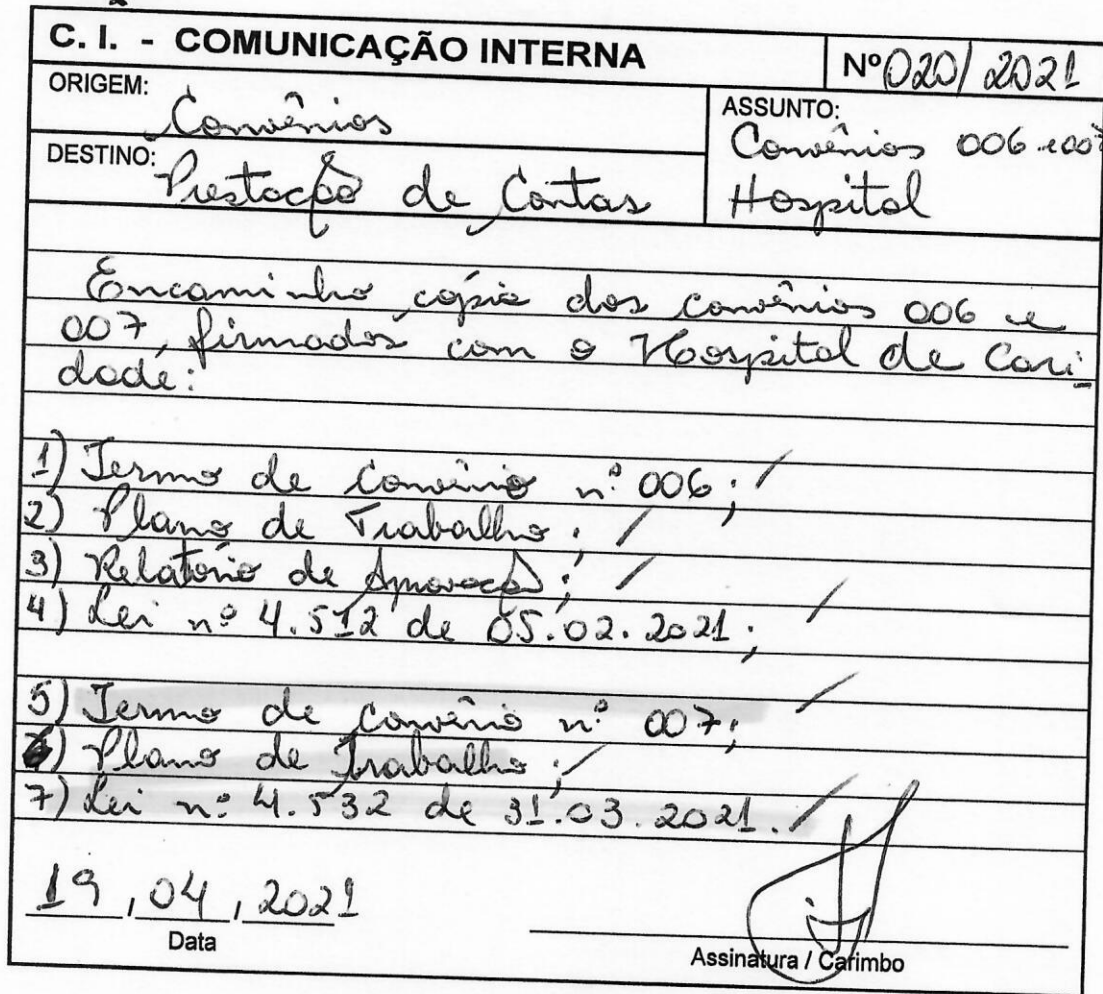 C. I. - COMUNICAÇÃO INTERNA
Nº 020/2021
ORIGEM:
Convênios
ASSUNTO:
Convênios 006 e 007
Hospital
DESTINO:
Prestação de Contas
Encaminho cópia dos convênios 006 e
007, firmados com o Hospital de Cari-
dade:
1) Termo de Convênio nº 006;
2) Plano de Trabalho;
3) Relatório de Aprovação;
4) Lei nº 4.512 de 05.02.2021;
5) Termo de Convênio nº 007;
6) Plano de Trabalho;
7) Lei nº 4.532 de 31.03.2021.
19, 04, 2021
Data
Assinatura / Carimbo